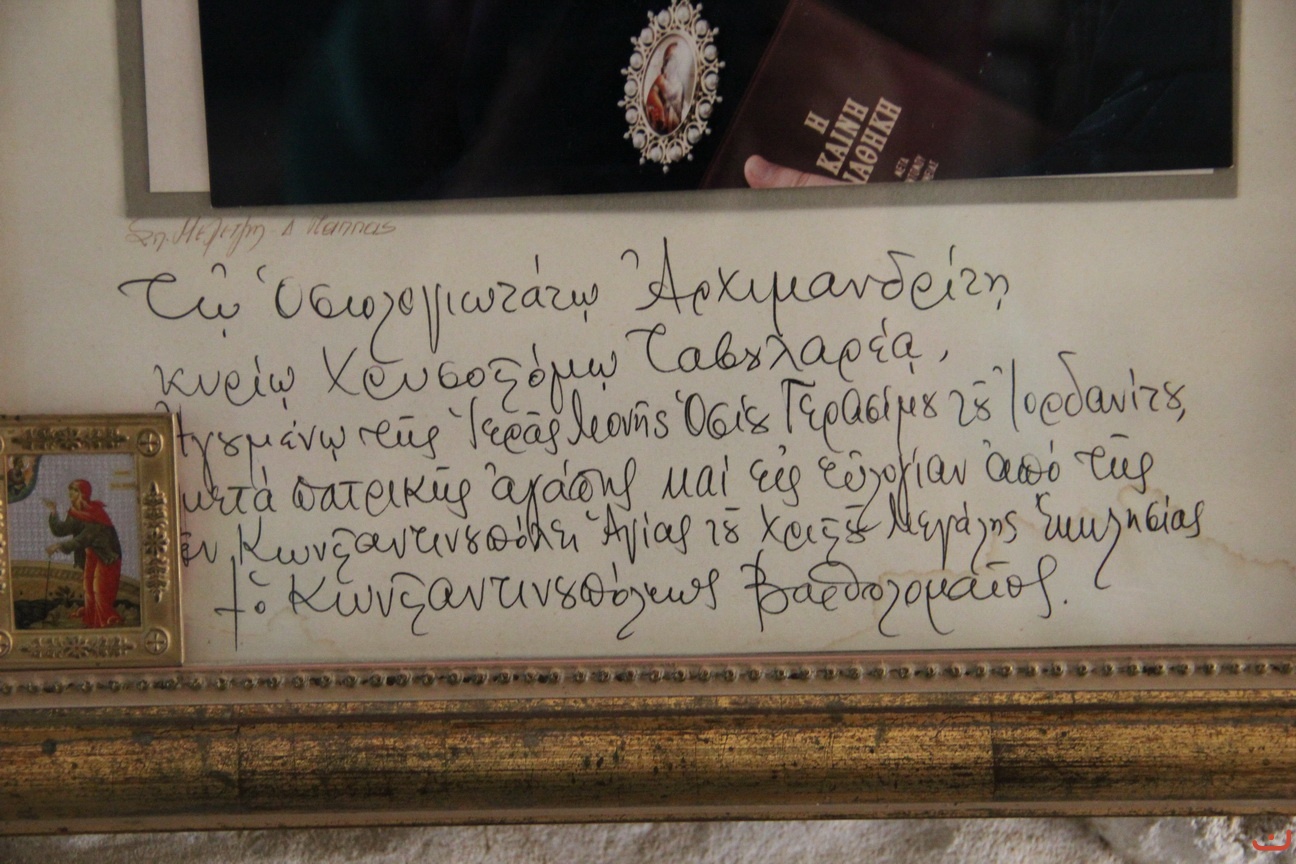 Η
ΚΑΙΝΗ
ΙΑΘΗΚΗ
ΜΕΤΑ
Τῷ Ὁσιολογιωτάτῳ Ἀρχιμανδρίτῃ
κυρίῳ Χρυσοϛόμῳ Ταβȣλαρέᾳ,
Ἡγȣμένῳ τῆς Ἱερᾶς Μονῆς Ὁσίȣ Γερασίμȣ τȣ͂ Ἰορδανίτȣ,
μετά πατρικῆς ἀγάπης καί εἰς εὐλογίαν ἀπό τῆς
ἐν Κωνϛαντινȣπόλει Ἁγίας τȣ͂ Χριϛȣ͂ Μεγάλης Ἐκκλησίας
† ὁ Κωνϛαντινȣπόλεως Βαρθολομαῖος.